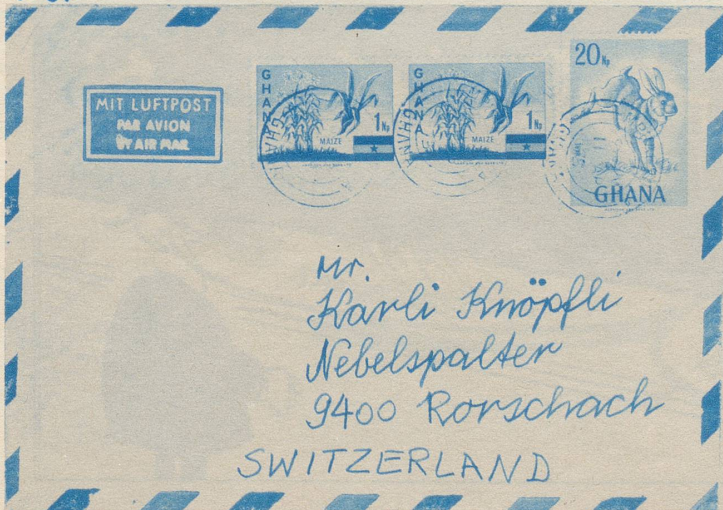 MIT LUFTPOST
PAR AVION
BY AIR MAIL
GHANA
1 Np
MAIZE
GHANA
1 Np
MAIZE
20 Np
GHANA
Mr.
Karli Knöpfli
Nebelspalter
9400 Rorschach
SWITZERLAND